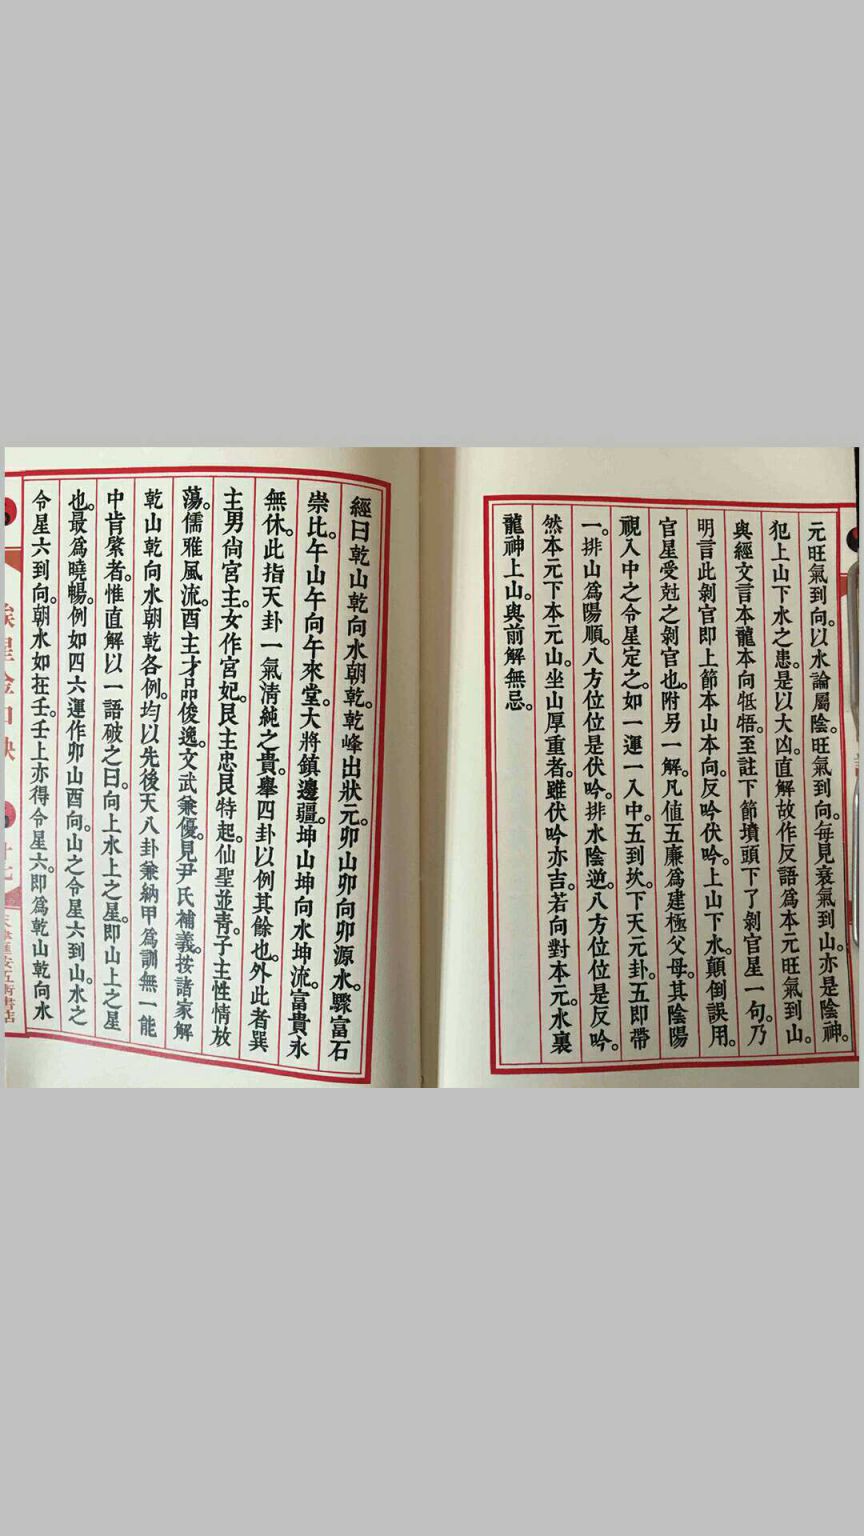 元旺氣到向。以水論屬陰。旺氣到向。每見衰氣到山。亦是陰神。
犯上山下水之患。是以大凶。直解故作反語爲本元旺氣到山。
與經文言本龍本向牴牾。至註下節墳頭下了剝官星一句。乃
明言此剝官即上節本山本向。反吟伏吟。上山下水。顛倒誤用。
官星受尅之剝官也。附另一解。凡值五廉爲建極父母。其陰陽
視入中之令星定之。如一運一入中。五到坎。下天元卦。五即帶
一。排山爲陽順。八方位位是伏吟。排水陰逆。八方位位是反吟。
然本元下本元山。坐山厚重者。雖伏吟亦吉。若向對本元。水裏
龍神上山。與前解無忌。
經曰乾山乾向水朝乾。乾峰出狀元。卯山卯向卯源水。驟富石
崇比。午山午向午來堂。大將鎮邊疆。坤山坤向水坤流。富貴永
無休。此指天卦一氣清純之貴。舉四卦以例其餘也。外此者巽
主男尙宮主。女作宮妃。艮主忠艮特起。仙聖並靑。子主性情放
蕩。儒雅風流。酉主才品俊逸。文武兼優。見尹氏補義。按諸家解
乾山乾向水朝乾各例。均以先後天八卦兼納甲爲訓無一能
中肯綮者。惟直解以一語破之曰。向上水上之星。即山上之星
也。最爲曉暢。例如四六運作卯山酉向。山之令星六到山。水之
令星六到向。朝水如在壬。壬上亦得令星六。即爲乾山乾向水